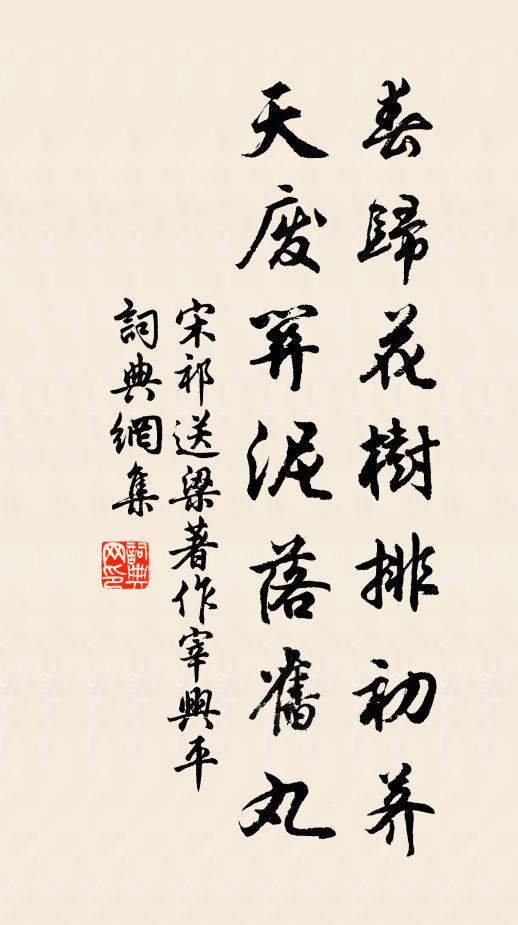 春歸花樹排初荠
天廢關泥落舊丸
宋祁送梁著作宰興平
詞典網集
詞典网印